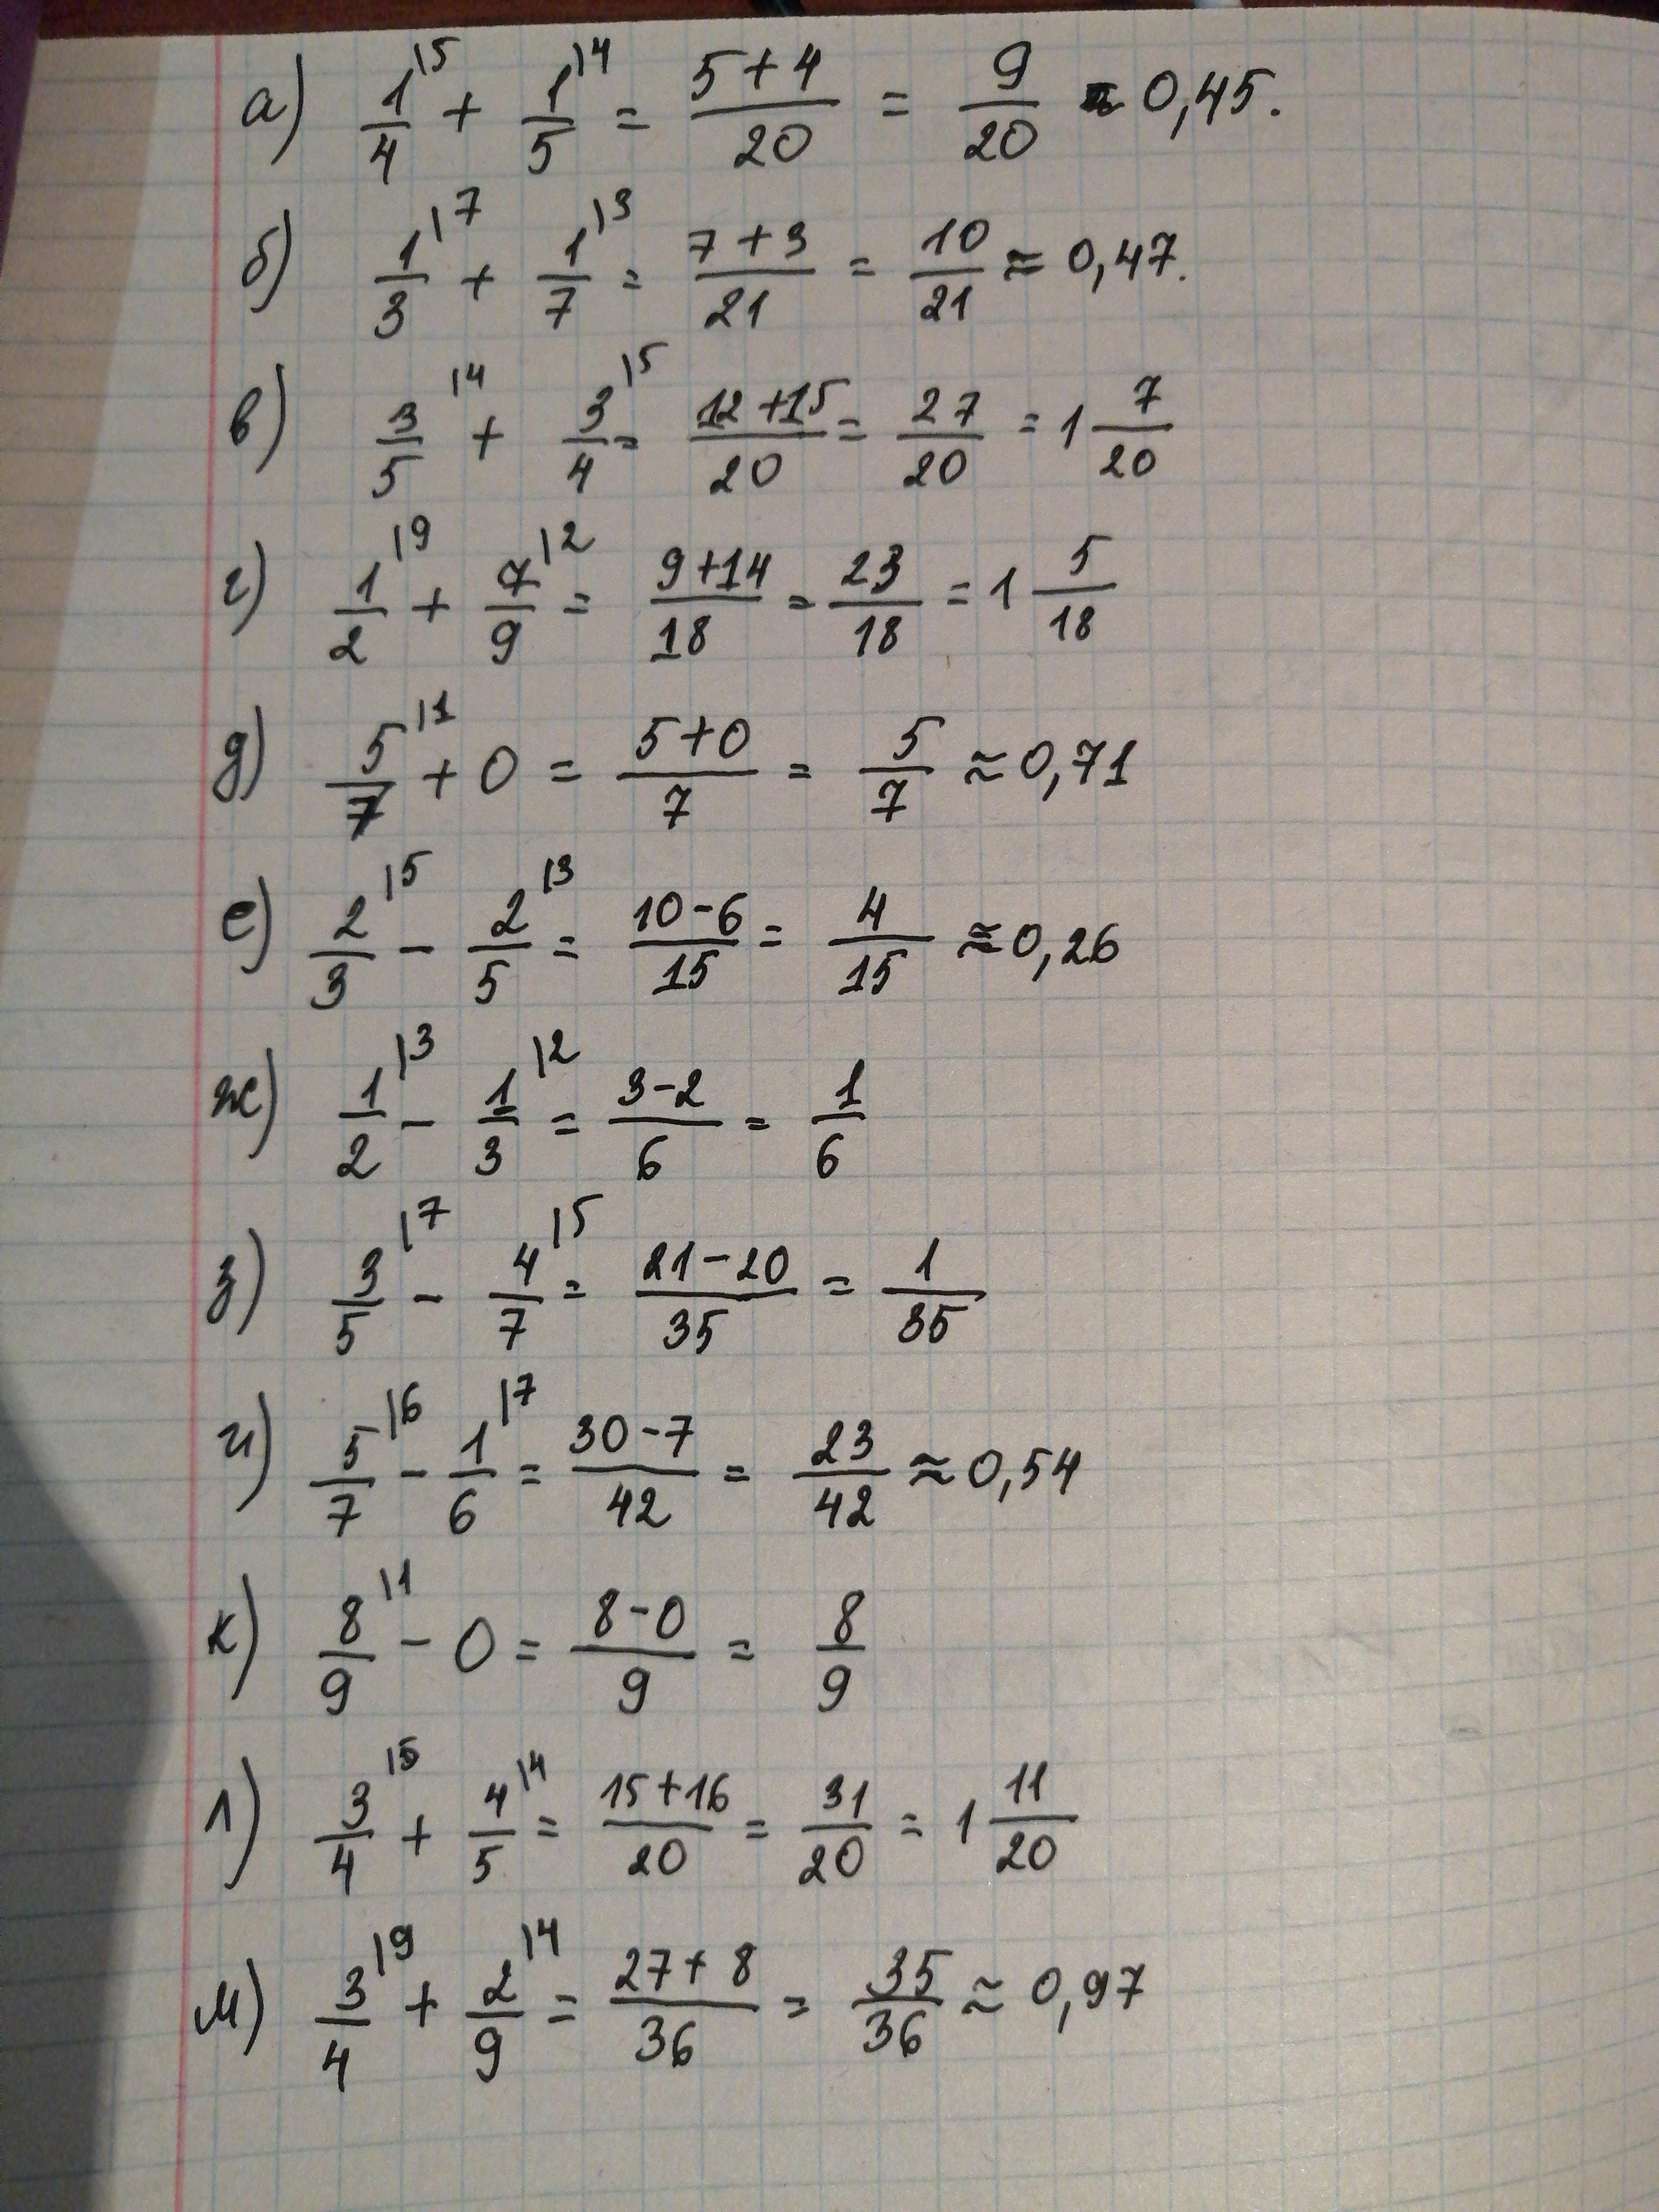 а) 1/4\5 + 1/5\4 = (5+4)/20 = 9/20 ≈ 0,45.
б) 1/3\7 + 1/7\3 = (7+3)/21 = 10/21 ≈ 0,47.
в) 3/5\4 + 3/4\5 = (12+15)/20 = 27/20 = 1 7/20
г) 1/2\9 + 7/9\2 = (9+14)/18 = 23/18 = 1 5/18
д) 5/7\1 + 0 = (5+0)/7 = 5/7 ≈ 0,71
е) 2/3\5 - 2/5\3 = (10-6)/15 = 4/15 ≈ 0,26
ж) 1/2\3 - 1/3\2 = (3-2)/6 = 1/6
з) 3/5\7 - 4/7\5 = (21-20)/35 = 1/35
и) 5/7\6 - 1/6\7 = (30-7)/42 = 23/42 ≈ 0,54
к) 8/9\1 - 0 = (8-0)/9 = 8/9
л) 3/4\5 + 4/5\4 = (15+16)/20 = 31/20 = 1 11/20
м) 3/4\9 + 2/9\4 = (27+8)/36 = 35/36 ≈ 0,97